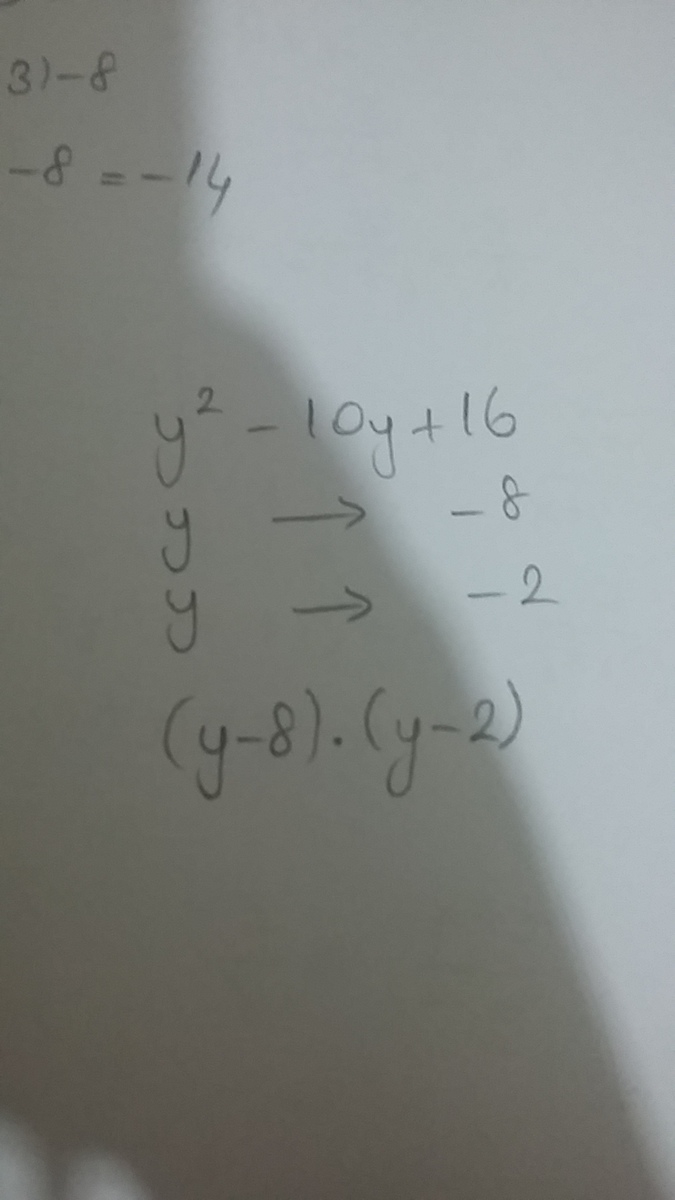 3)-8
-8 = -14
y² - 10y + 16
y → -8
y → -2
(y-8).(y-2)